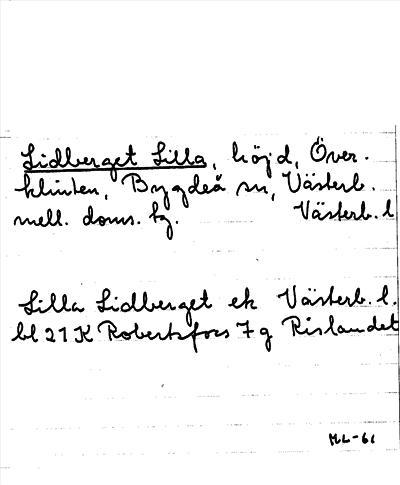 Lidberget Lilla, höjd, Över-
klinten, Bygdeå sn, Västerb.
mell. doms. tg. Västerb. l
Lilla Lidberget ek Västerb. l.
bl 21K Robertsfors 7 g Rislandet
ML-61